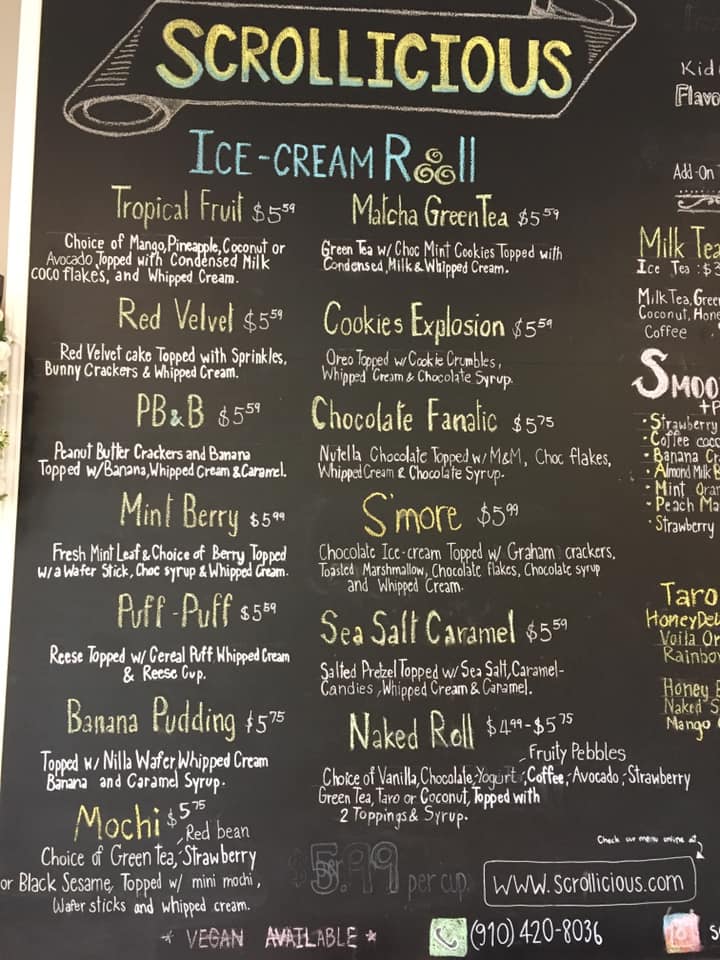 SCROLLICIOUS
ICE-CREAM Roll
Tropical Fruit $5.59
Choice of Mango, Pineapple, Coconut or
Avocado, Topped with Condensed Milk
coco flakes, and Whipped Cream.
Red Velvet $5.59
Red Velvet cake Topped with Sprinkles,
Bunny Crackers & Whipped Cream.
PB&B $5.59
Peanut Butter Crackers and Banana
Topped w/Banana, Whipped Cream & Caramel.
Mint Berry $5.99
Fresh Mint Leaf & Choice of Berry Topped
w/a Wafer Stick, Choc syrup & Whipped Cream.
Puff-Puff $5.59
Reese Topped w/ Cereal Puff Whipped Cream
& Reese Cup.
Banana Pudding $5.75
Topped w/ Nilla Wafer Whipped Cream
Banana and Caramel Syrup.
Mochi $5.75
Red bean
Choice of Green tea, Strawberry
or Black Sesame, Topped w/ mini mochi,
Wafer sticks and whipped cream.
* VEGAN AVAILABLE *
Matcha Green Tea $5.59
Green Tea w/ Choc Mint Cookies Topped with
Condensed, Milk & Whipped Cream.
Cookies Explosion $5.59
Oreo Topped w/ Cookie Crumbles,
Whipped Cream & Chocolate Syrup.
Chocolate Fanatic $5.75
Nutella Chocolate Topped w/ M&M, Choc flakes,
Whipped Cream & Chocolate Syrup.
S'more $5.99
Chocolate Ice-cream Topped w/ Graham crackers,
Toasted Marshmallow, Chocolate flakes, Chocolate syrup
and Whipped Cream.
Sea Salt Caramel $5.59
Salted Pretzel Topped w/ Sea Salt, Caramel-
Candies, Whipped Cream & Caramel.
Naked Roll $4.99-$5.75
Fruity Pebbles
Choice of Vanilla, Chocolate, Yogurt, Coffee, Avocado, Strawberry
Green Tea, Taro or Coconut, Topped with
2 Toppings & Syrup.
$5.99 per cup
Check our menu online at
www.scrollicious.com
(910) 420-8036
Kid
Flavo
Add-On
Milk Tea
Ice Tea : $3
Milk Tea, Gree
Coconut, Hone
Coffee
SMOO
+P
• Strawberry
• Coffee coco
• Banana Cr
• Almond Milk B
• Mint Oran
• Peach Ma
• Strawberry
Taro
Honey Del
Voila Or
Rainbow
Honey
Naked S
Mango